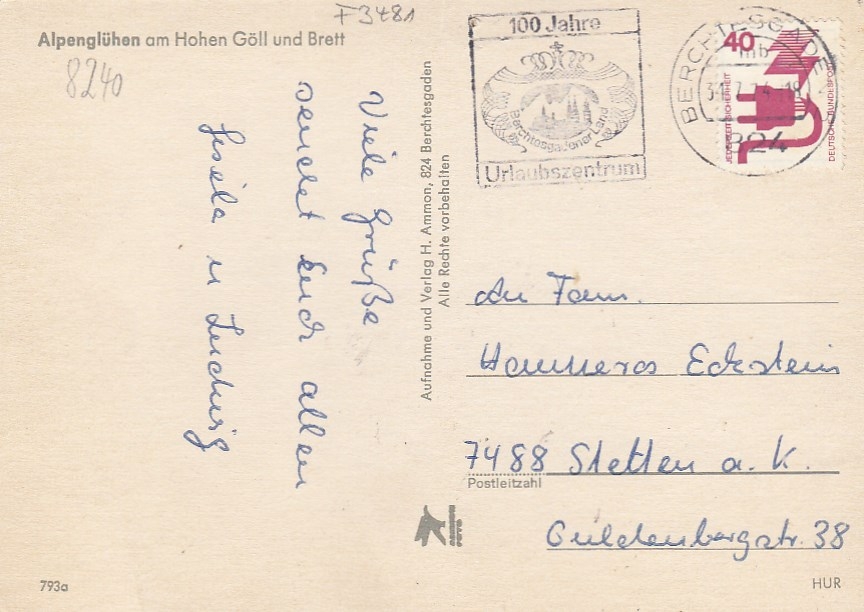 F3481
Alpenglühen am Hohen Göll und Brett
8240
Viele Grüße
sendet Euch allen
Gisela u
Aufnahme und Verlag H. Ammon, 824 Berchtesgaden
Alle Rechte vorbehalten
100 Jahre
Berchtesgadener Land
Urlaubszentrum
BERCHTESGADEN
mb
31.7.74-18
824
40
JEDERZEIT SICHERHEIT
DEUTSCHE BUNDESPOST
An Fam.
Eckstein
7488 Stetten a. k.
Postleitzahl
Guldenbergstr. 38
793a
HUR